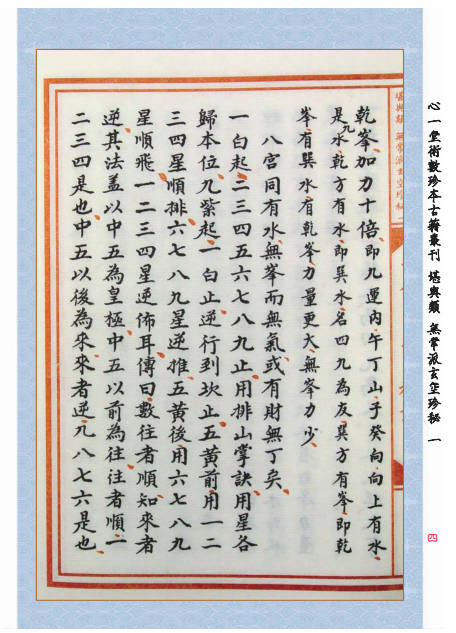 心一堂術數珍本古籍叢刊 堪輿類 無常派玄空珍秘 一
四
乾峯加力十倍、即九運內、午丁山、子癸向、向上有水、
是九水、乾方有水、即巽水、名四九為友、巽方有峯、即乾
峯有巽水、有乾峯力量更大、無峯力少、
八宮同有水、無峯而無氣、或有財無丁矣、
一白起、二三四五六七八九止、用排山掌訣、用星各
歸本位、九紫起、一白止、逆行到坎止、五黃前用一二
三四星順排、六七八九星逆推、五黃後用六七八九
星順飛、一二三四星逆佈耳、傳曰、數往者順、知來者
逆、其法蓋以中五為皇極、中五以前為往、往者順、一
二三四是也、中五以後為來、來者逆、九八七六是也、